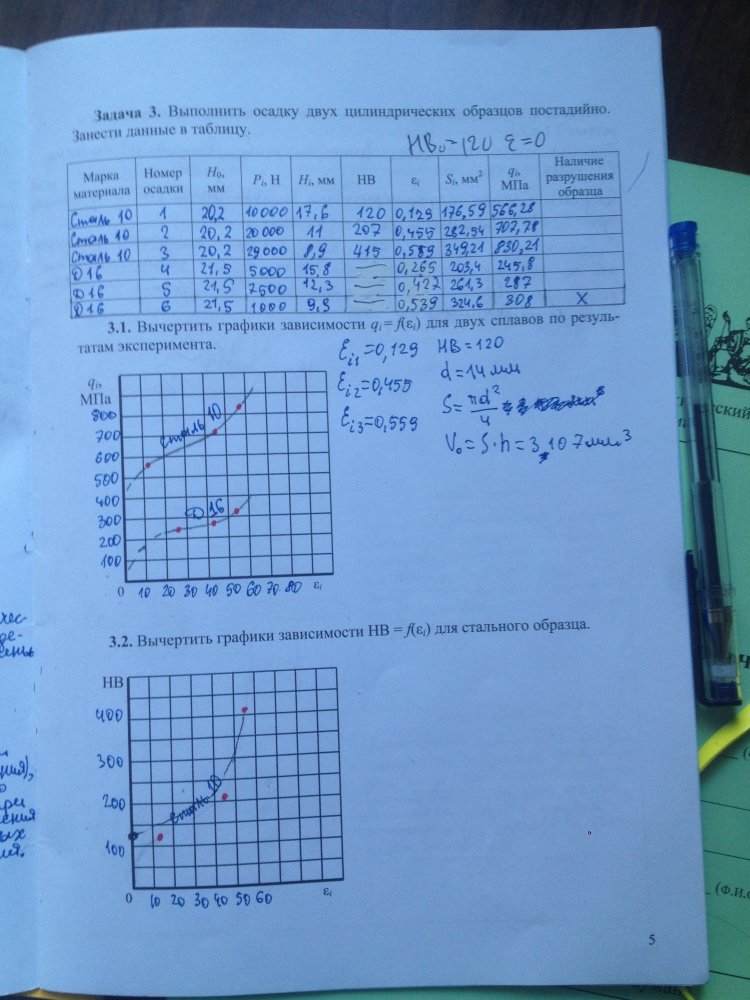 Задача 3. Выполнить осадку двух цилиндрических образцов постадийно.
Занести данные в таблицу.
HB₀=120 ε=0
Марка материала Номер осадки H₀, мм Pᵢ, Н Hᵢ, мм НВ εᵢ Sᵢ, мм² qᵢ, МПа Наличие разрушения образца
Сталь 10 1 20,2 10000 17,6 120 0,129 176,59 566,28
Сталь 10 2 20,2 20000 11 207 0,455 282,54 707,78
Сталь 10 3 20,2 29000 8,9 415 0,589 349,21 830,21
Д16 4 21,5 5000 15,8 0,265 203,4 245,8
Д16 5 21,5 7500 12,3 0,427 261,3 287
Д16 6 21,5 1000 9,9 0,539 324,6 308 х
3.1. Вычертить графики зависимости qᵢ = f(εᵢ) для двух сплавов по резуль-
татам эксперимента.
εᵢ₁=0,129 HB=120
εᵢ₂=0,455 d=14мм
εᵢ₃=0,559 S=πd²/4
V₀=S·h=3,107мм³
qᵢ,
МПа
800
700
600
500
400
300
200
100
Сталь 10
Д16
0 10 20 30 40 50 60 70 80 εᵢ
3.2. Вычертить графики зависимости НВ = f(εᵢ) для стального образца.
НВ
400
300
200
100
Сталь 10
0 10 20 30 40 50 60 εᵢ
5
(Ф.И.О